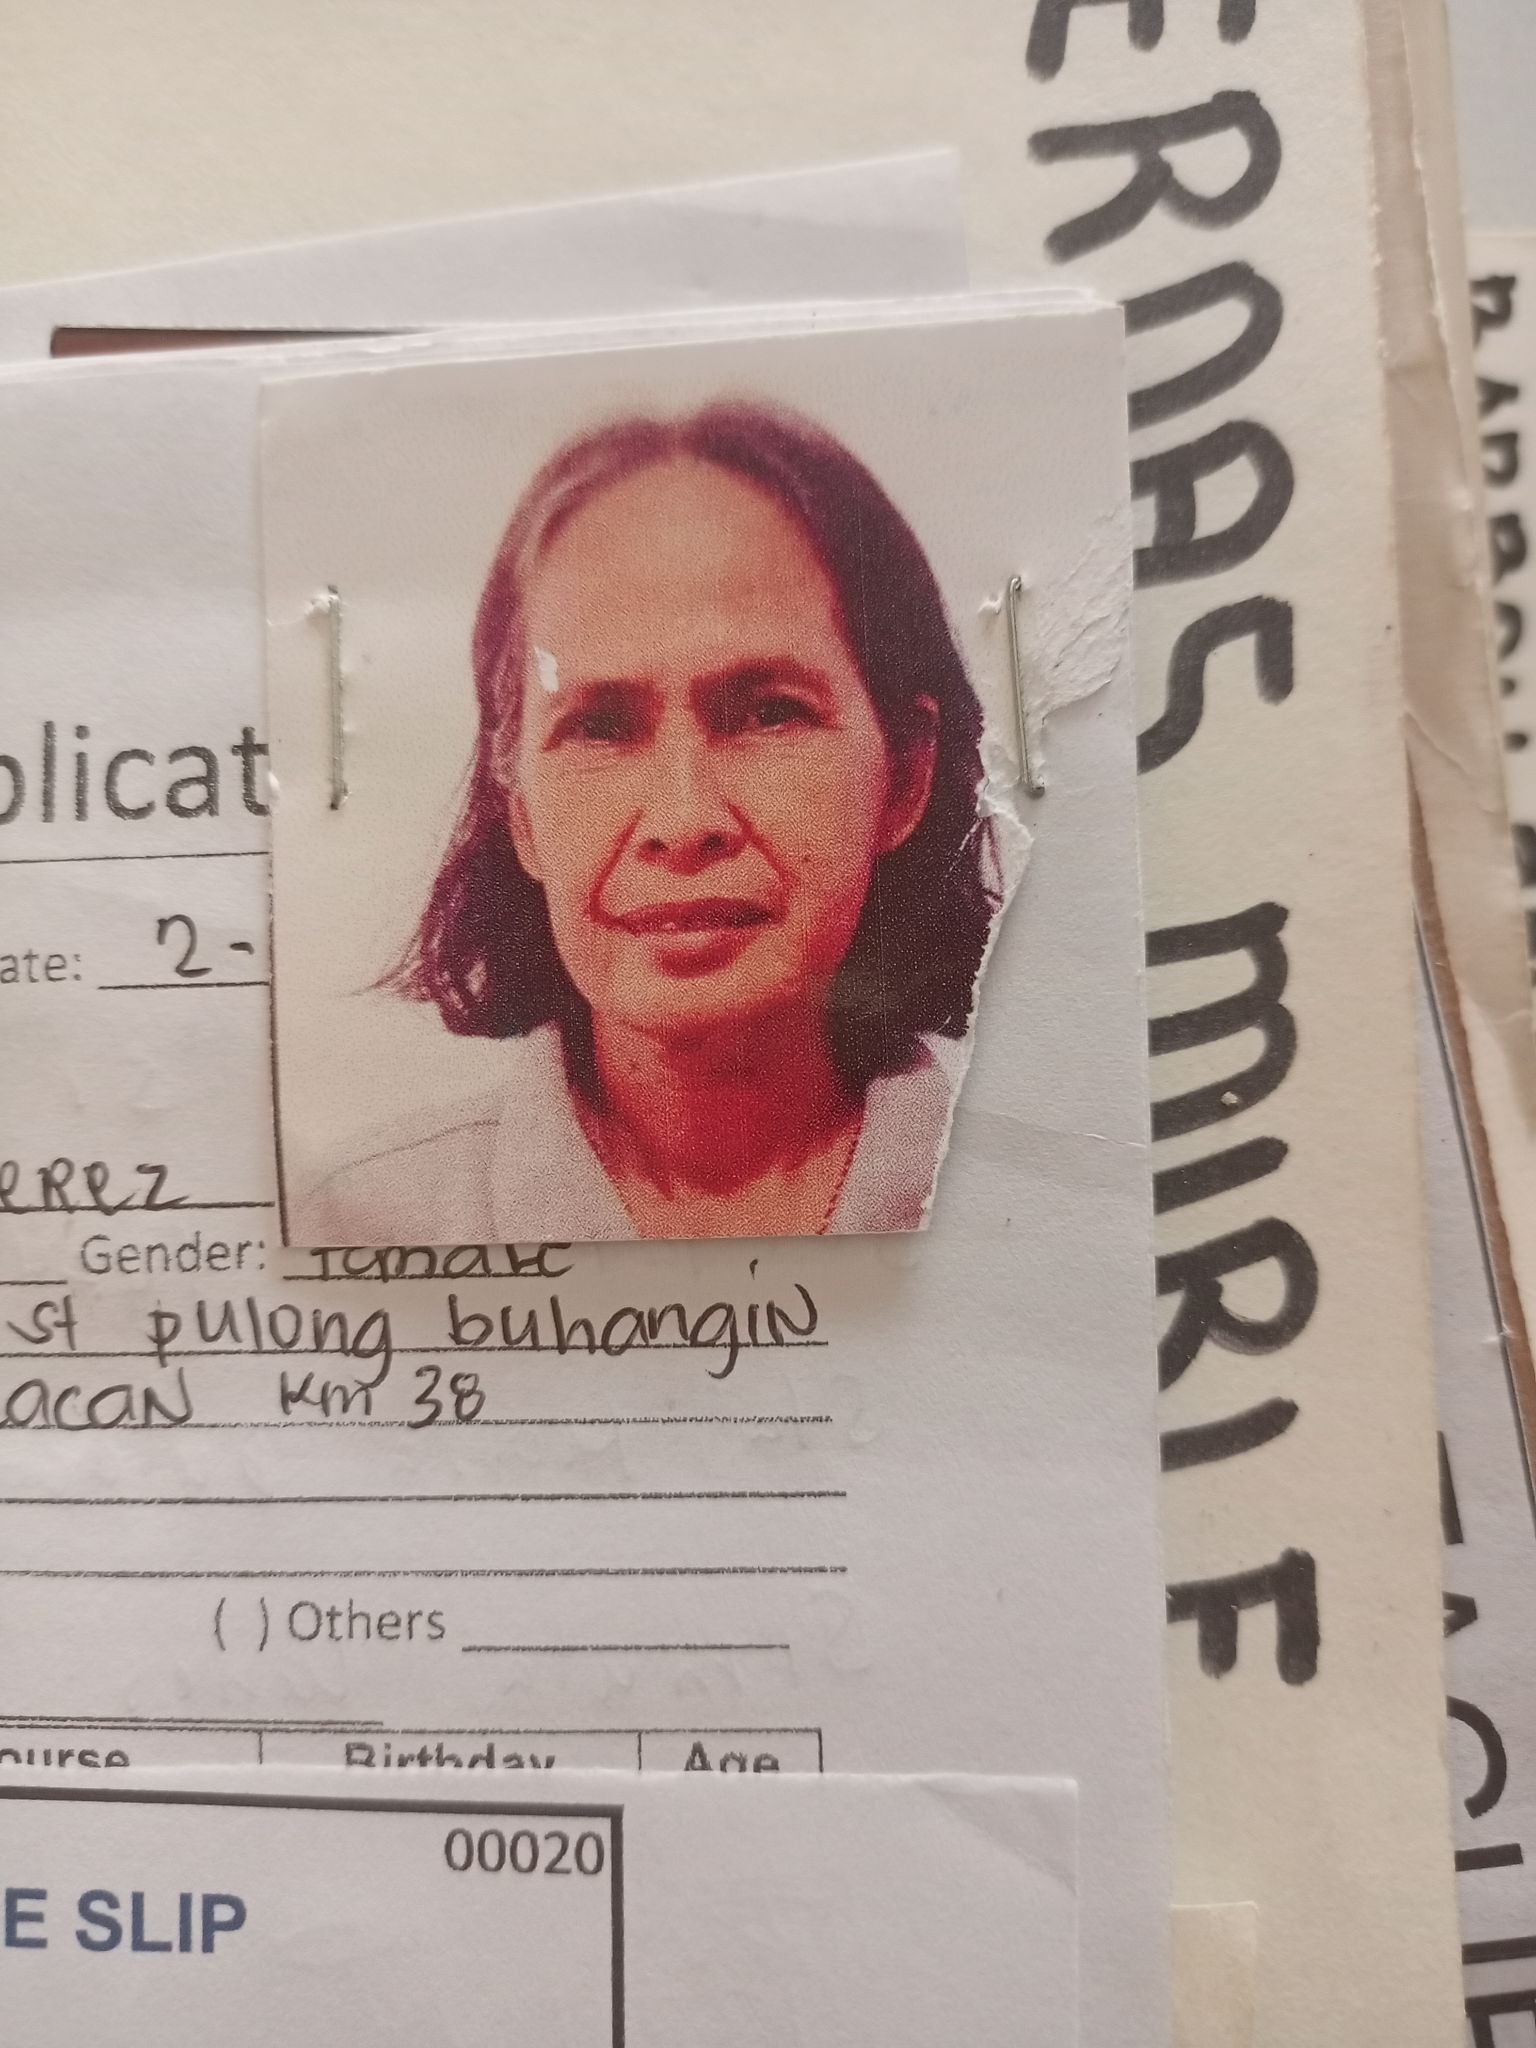 plicat
ate: 2-
eRez
Gender: female
st pulong buhangin
lacan km 38
( ) Others
ourse Birthday Age
00020
E SLIP
ERNAS MIRIF